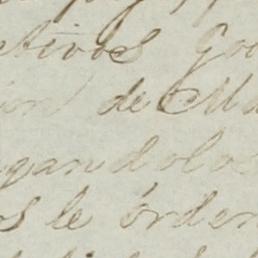 ctivos Go
ion de Ma
gandolos
os le órden